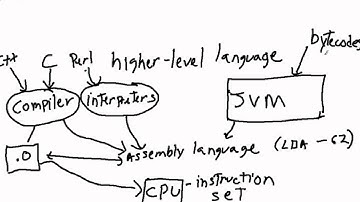 C++ C Perl higher-level language
bytecodes
compiler interputers JVM
.O Assembly language (LDA - 62)
CPU - instruction
SET